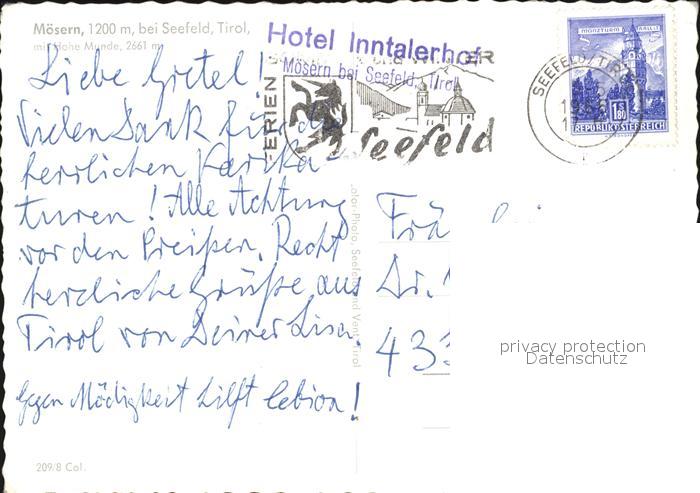 Mösern, 1200 m, bei Seefeld, Tirol,
mit Hohe Munde, 2661 m
Hotel Inntalerhof
Mösern bei Seefeld, Tirol
FERIEN
Seefeld
SEEFELD/TIROL
MÜNZTURM HALL I. T.
1.80
REPUBLIK ÖSTERREICH
Liebe Gretel!
Vielen Dank für die
herrlichen Karika-
turen! Alle Achtung
vor den Preißen. Recht
herzliche Grüße aus
Tirol von Deiner Lisa.
Gegen Müdigkeit hilft
Frä
Dr.
43
privacy protection
Datenschutz
209/8 Col.